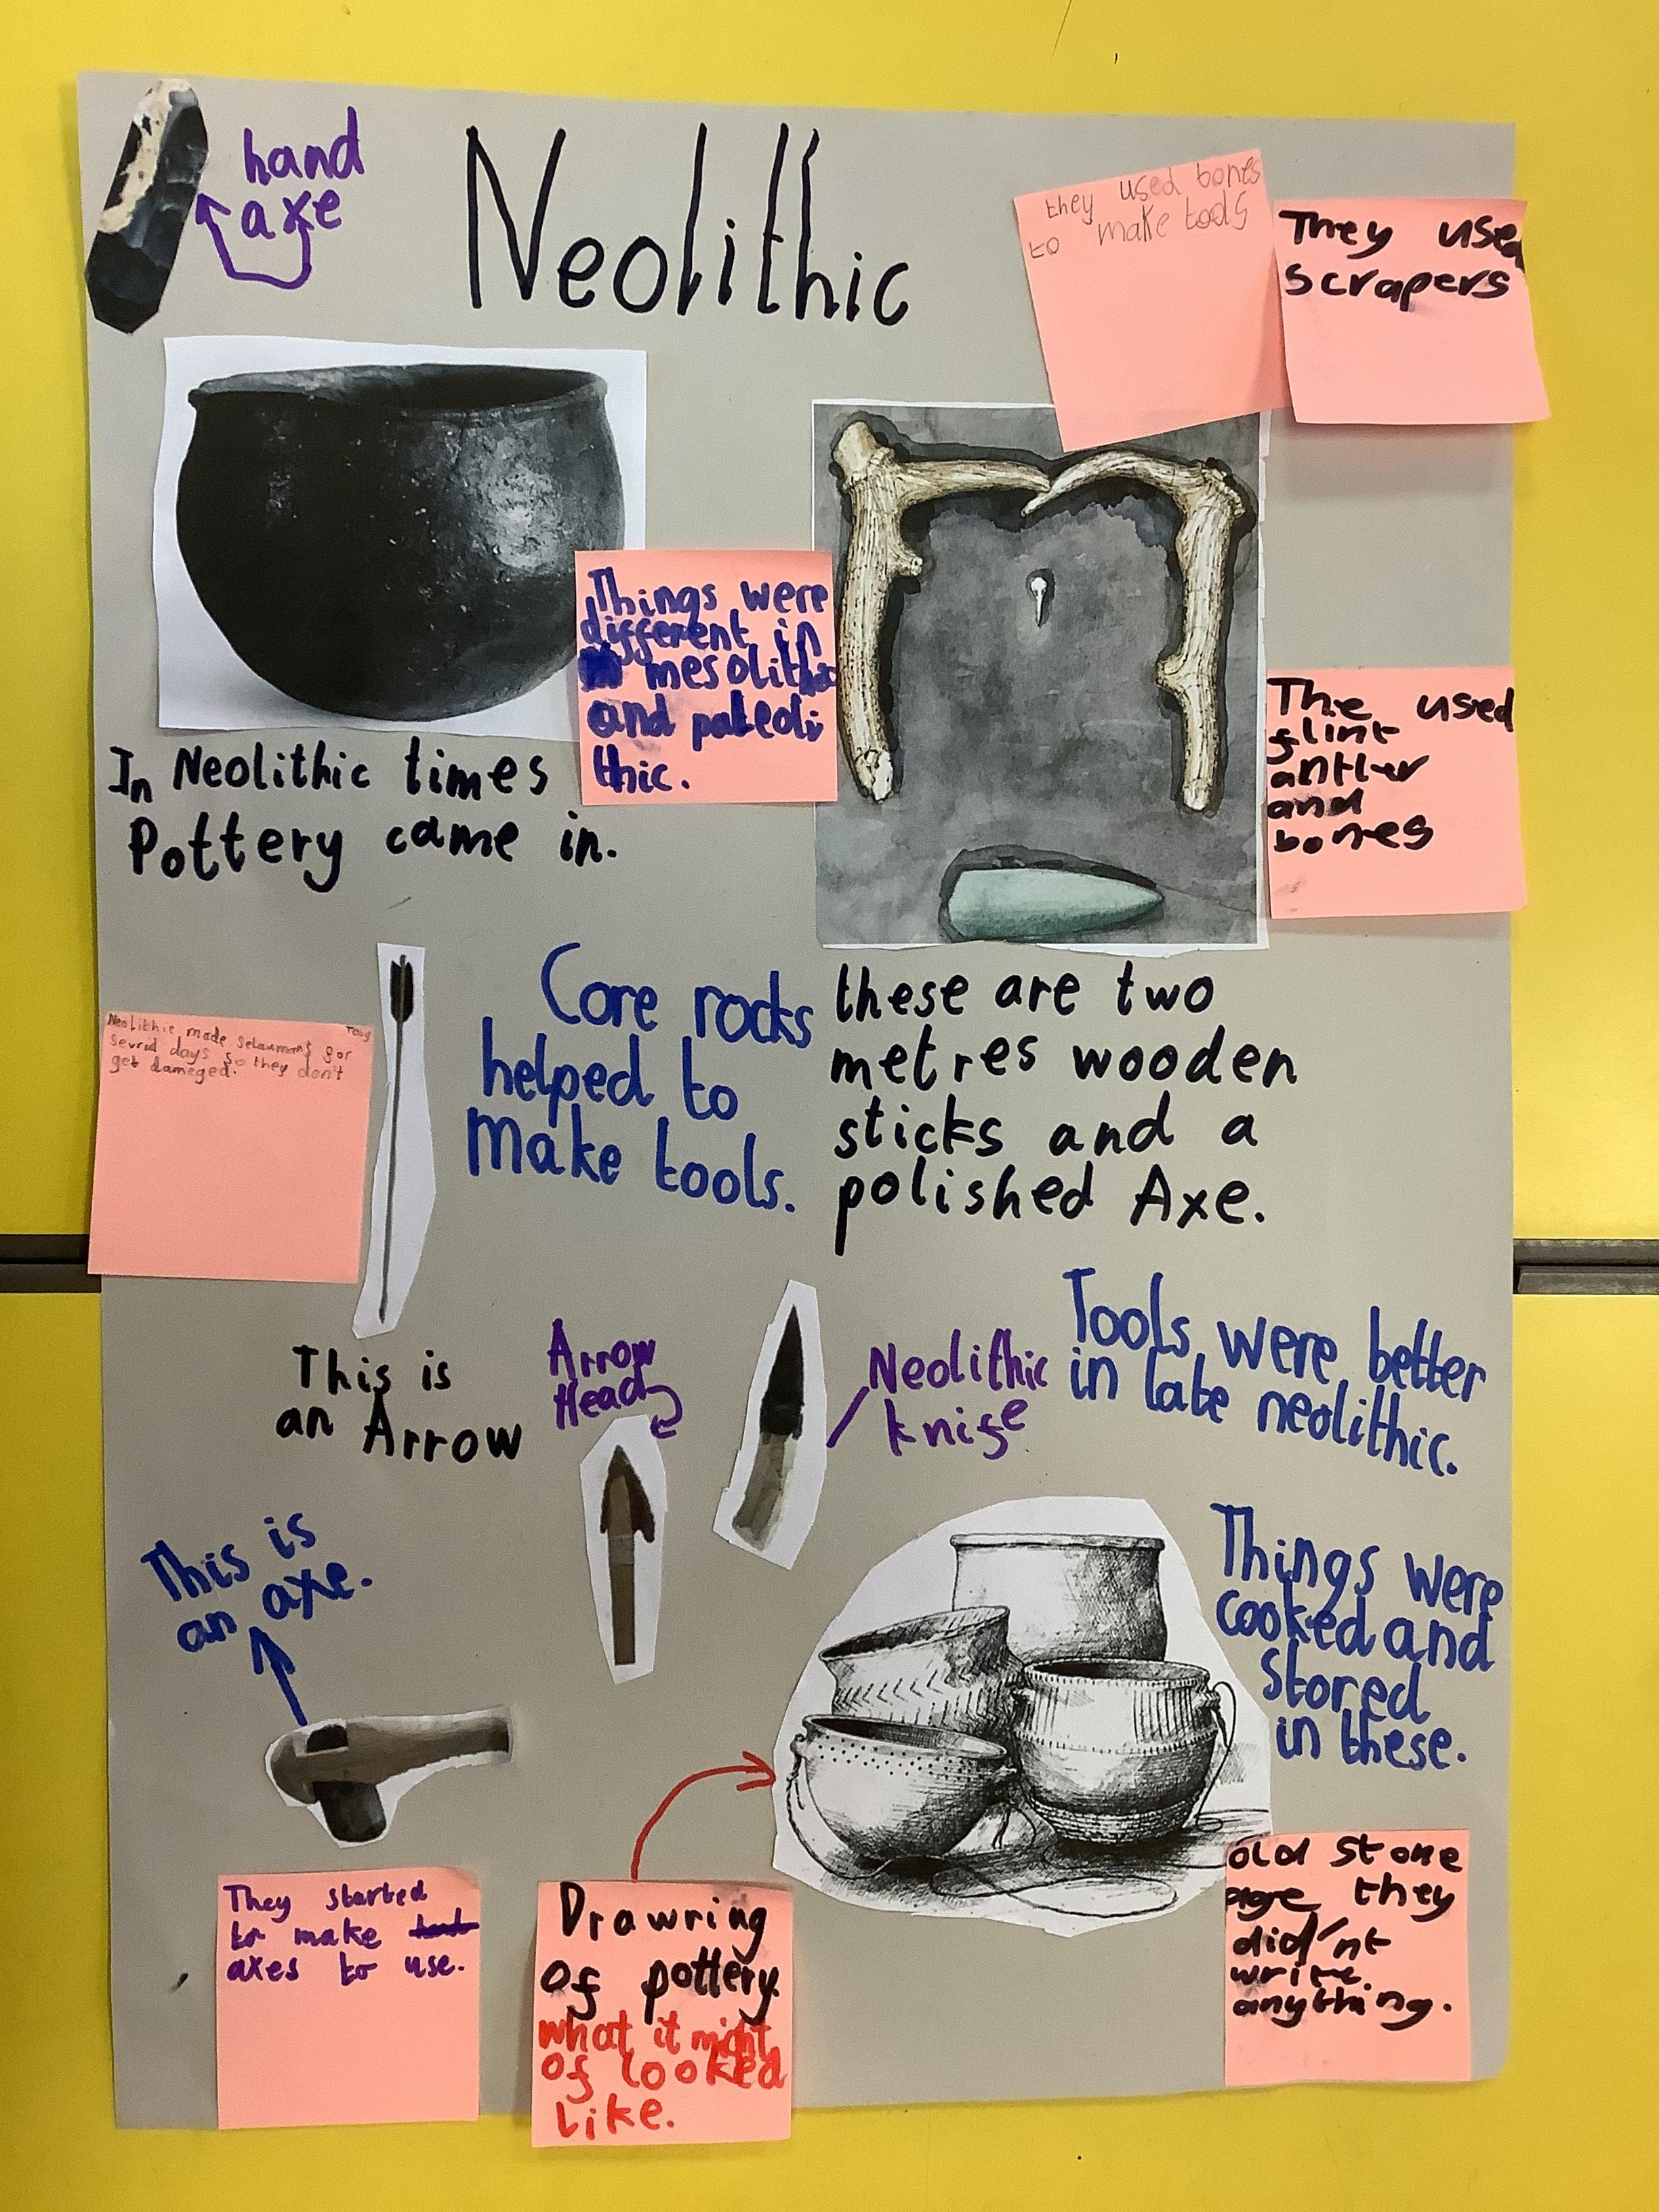 hand
axe
Neolithic
they used bones
to make tools
They used
scrapers
Things were
different in
mesolithic
and paleoli
thic.
The used
flint
antler
and
bones
In Neolithic times
Pottery came in.
Neolithic made setaumant for
sevral days so they don't
get dameged.
Core rocks
helped to
make tools.
these are two
metres wooden
sticks and a
polished Axe.
This is
an Arrow
Arrow
Head
Neolithic
knife
Tools were better
in late neolithic.
This is
an axe.
Things were
cooked and
stored
in these.
They started
to make
axes to use.
Drawring
of pottery.
what it might
of looked
like.
old stone
age they
did'nt
write.
anything.